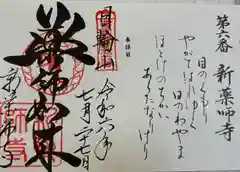 第六番 新薬師寺
目のくもり
やがてはれゆく
日のわやま
ほとけのちかい
あらたなりけり
奉拝
日輪山
令和六年
七月二七日
薬師如来
新薬師寺